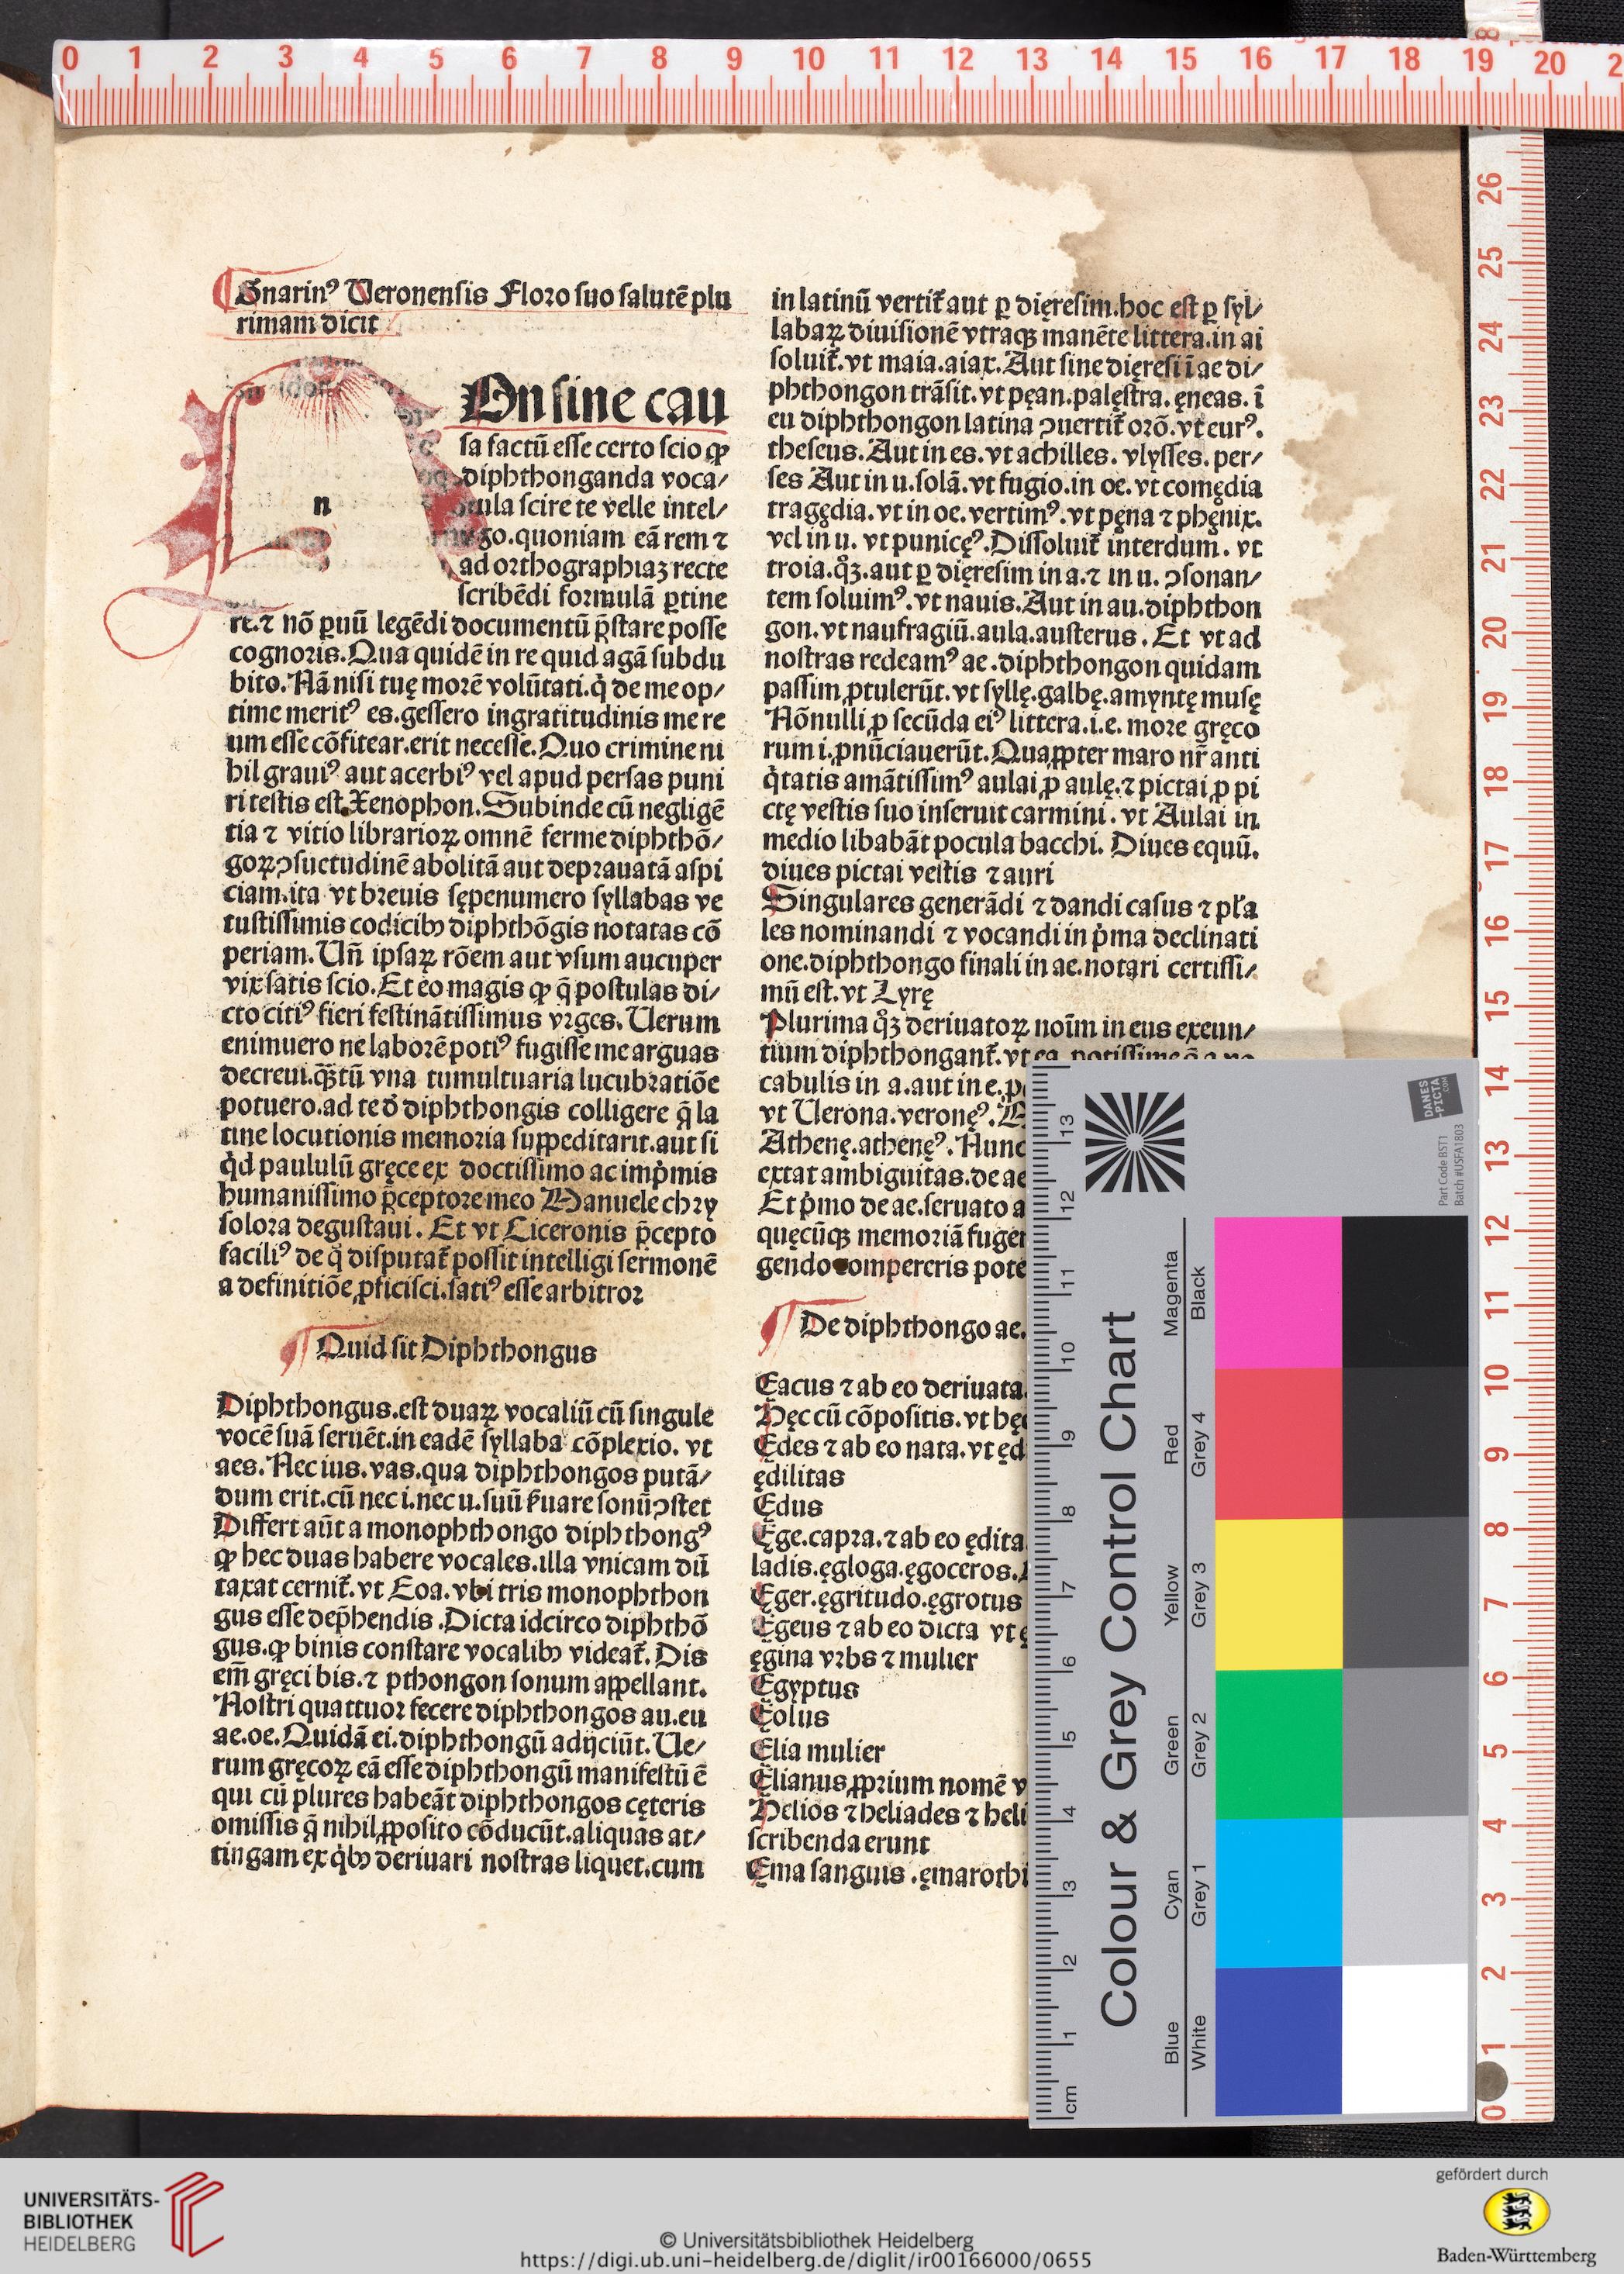 Gnarinꝰ Veronensis Floro suo salutē plu
rimam dicit
n
On sine cau
sa factū esse certo scio ꝙ
diphthonganda voca/
bula scire te velle intel/
go.quoniam eā rem ⁊
ad orthographiaʒ recte
scribēdi formulā ꝑtine
re.⁊ nō ꝑuū legēdi documentū p̄stare posse
cognoris.Qua quidē in re quid agā subdu
bito.Nā nisi tuę morē volūtati.q̇ de me op/
time meritꝰ es.gessero ingratitudinis me re
um esse cōfitear.erit necesse.Quo crimine ni
hil grauiꝰ aut acerbiꝰ vel apud persas puni
ri testis est.Xenophon.Subinde cū negligē
tia ⁊ vitio librarioꝝ omnē ferme diphthō/
goꝝ ꝯsuetudinē abolitā aut deprauatā aspi
ciam.ita vt breuis sępenumero syllabas ve
tustissimis codicibꝰ diphthōgis notatas cō
periam.Un̄ ipsaꝝ rōem aut vsum aucuper
vix satis scio.Et eo magis ꝙ q̄ postulas di/
cto citiꝰ fieri festinātissimus vrges.Verum
enimuero ne laborē potiꝰ fugisse me arguas
decreui.q̄stū vna tumultuaria lucubratiōe
potuero.ad te đ diphthongis colligere q̄ la
tine locutionis memoria suppeditarit.aut si
q̇d paululū gręce ex doctissimo ac imṗmis
humanissimo p̄ceptore meo Manuele chry
solora degustaui. Et vt Ciceronis p̄cepto
faciliꝰ de q̇ disputat̄ possit intelligi sermonē
a definitiōe ꝓficisci.satiꝰ esse arbitror
Quid sit Diphthongus
Diphthongus.est duaꝝ vocaliū cū singule
vocē suā seruēt.in eadē syllaba cōplexio. vt
aes.Nec ius.vas.qua diphthongos putā/
dum erit.cū nec i.nec u.suū ẜuare sonū ꝯstet
Differt aūt a monophthongo diphthongꝰ
ꝙ hec duas habere vocales.illa vnicam dū
taxat cernit̄. vt Eoa.vbi tris monophthon
gus esse dep̄hendis .Dicta idcirco diphthō
gus.ꝙ binis constare vocalibꝰ videat̄. Dis
em̄ gręci bis.⁊ pthongon sonum appellant.
Nostri quattuor fecere diphthongos au.eu
ae.oe.Quidā ei.diphthongū adijciūt.Ve/
rum gręcoꝝ eā esse diphthongū manifestū ē
qui cū plures habeāt diphthongos cęteris
omissis q̄ nihil ꝓposito cōducūt.aliquas at/
tingam ex q̇bꝰ deriuari nostras liquet.cum
in latinū vertit̄ aut ꝑ dięresim.hoc est ꝑ syl/
labaꝝ diuisionē vtraqꝫ manēte littera.in ai
soluit̄.vt maia.aiax.Aut sine dięresi ī ae di/
phthongon trāsit.vt pęan.palęstra.ęneas. ī
eu diphthongon latina ꝯuertit̄ orō.vt eurꝰ.
theseus.Aut in es.vt achilles. vlysses. per/
ses Aut in u.solā.vt fugio.in oe.vt comędia
tragędia.vt in oe.vertimꝰ.vt pęna ⁊ phęnix.
vel in u. vt punicęꝰ.Dissoluit̄ interdum. vt
troia.q̊ꝫ.aut ꝑ dięresim in a.⁊ in u. ꝯsonan/
tem soluimꝰ.vt nauis.Aut in au.diphthon
gon.vt naufragiū.aula.austerus. Et vt ad
nostras redeamꝰ ae .diphthongon quidam
passim ꝓtulerūt.vt syllę.galbę.amyntę musę
Nōnulli ꝓ secūda eiꝰ littera.i.e. more gręco
rum i.ꝓnūciauerūt.Quaꝓpter maro nr̄ anti
q̇tatis amātissimꝰ aulai ꝓ aulę.⁊ pictai ꝓ pi
ctę vestis suo inseruit carmini. vt Aulai in
medio libabāt pocula bacchi. Diues equū.
diues pictai vestis ⁊ auri
Singulares generādi ⁊ dandi casus ⁊ pła
les nominandi ⁊ vocandi in ṗma declinati
one.diphthongo finali in ae.notari certissi/
mū est.vt Lyrę
Plurima q̊ꝫ deriuatoꝝ noīm in eus exeun/
tium diphthongant̄.vt ea potissime q̄ a vo
cabulis in a.aut in e.p
vt Verona.veronęꝰ.
Athenę.athenęꝰ.Hunc
extat ambiguitas.de ae
Et ṗmo de ae.seruato a
quęcūqꝫ memoriā fuge
gendo compereris pote
De diphthongo ae.
Eacus ⁊ ab eo deriuata.
Hęc cū cōpositis.vt hę
Edes ⁊ ab eo nata.vt ęd
ędilitas
Ędus
Ęge.capra.⁊ ab eo ędita
ladis.ęgloga.ęgoceros.
Ęger.ęgritudo.ęgrotus
Ęgeus ⁊ ab eo dicta vt ę
ęgina vrbs ⁊ mulier
Ęgyptus
Ęolus
Ęlia mulier
Ęlianus ꝓprium nomē v
Helios ⁊ heliades ⁊ heli
scribenda erunt
Ęma sanguis .ęmarothi
Colour & Grey Control Chart
Blue Cyan Green Yellow Red Magenta
White Grey 1 Grey 2 Grey 3 Grey 4 Black
cm 1 2 3 4 5 6 7 8 9 10 11 12 13
DANES-PICTA.COM
Part Code BST1
Batch #USFA1803
0 1 2 3 4 5 6 7 8 9 10 11 12 13 14 15 16 17 18 19 20
0 1 2 3 4 5 6 7 8 9 10 11 12 13 14 15 16 17 18 19 20 21 22 23 24 25 26
UNIVERSITÄTS-
BIBLIOTHEK
HEIDELBERG
© Universitätsbibliothek Heidelberg
https://digi.ub.uni-heidelberg.de/diglit/ir00166000/0655
gefördert durch
Baden-Württemberg